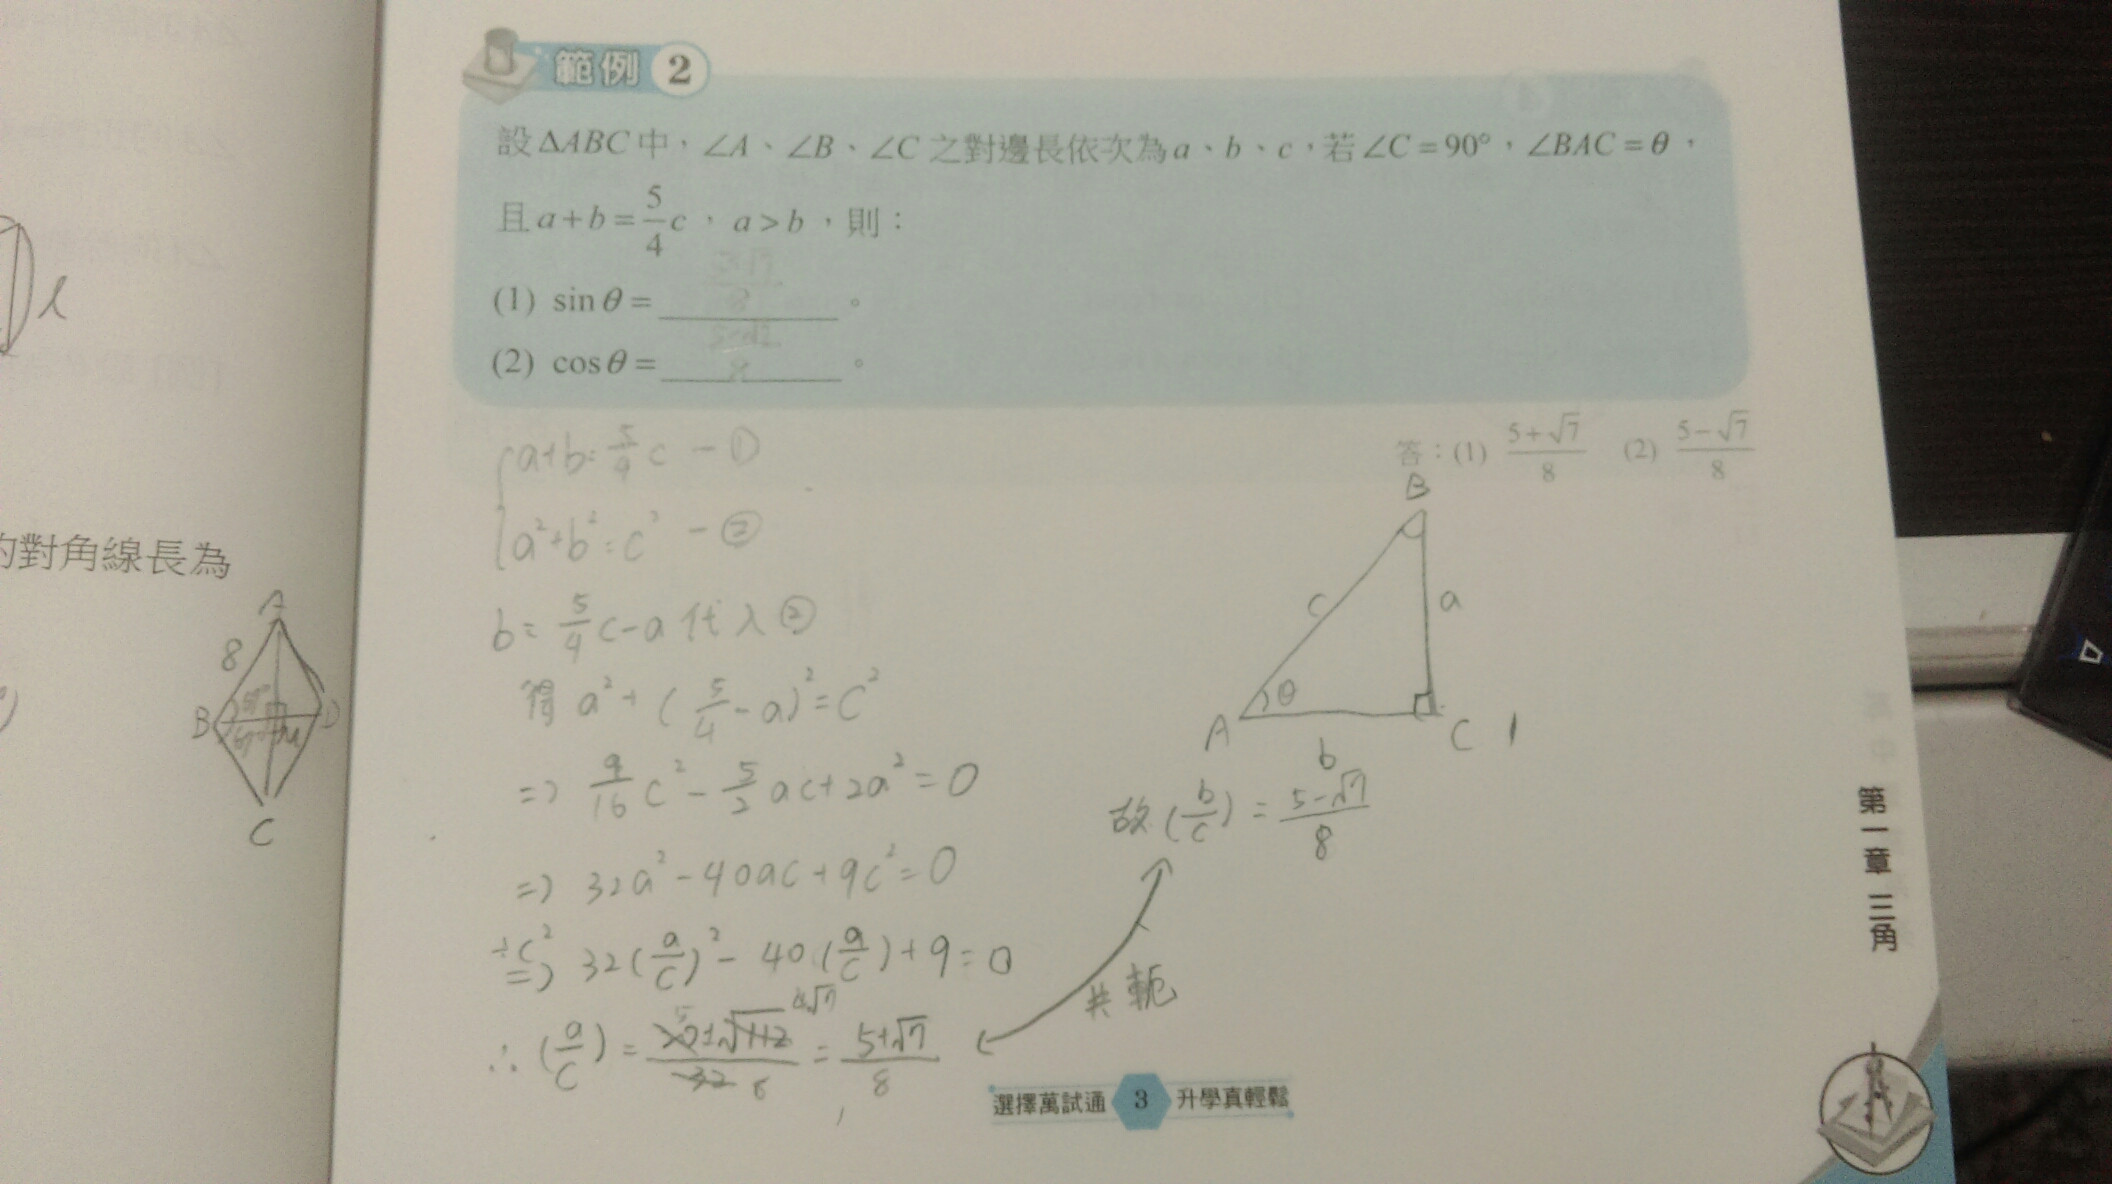 範例 2
設ΔABC中,∠A、∠B、∠C之對邊長依次為a、b、c,若∠C=90°,∠BAC=θ,
且a+b=5/4 c,a>b,則:
(1) sinθ= 。
(2) cosθ= 。
答:(1) (5+√7)/8 (2) (5-√7)/8
a+b=5/4 c -①
a²+b²=c² -②
b=5/4 c-a 代入②
得 a²+(5/4-a)²=c²
=> 9/16 c²-5/2 ac+2a²=0
=> 32a²-40ac+9c²=0
÷c² => 32(a/c)²-40(a/c)+9=0
∴(a/c)= (20±√112)/32 = (5+√7)/8
5 4√7 8
B
c
a
A
θ
C
b
故(b/c)=(5-√7)/8
共軛
的對角線長為
A
8
B
D
C
選擇萬試通 3 升學真輕鬆
第一章 三角